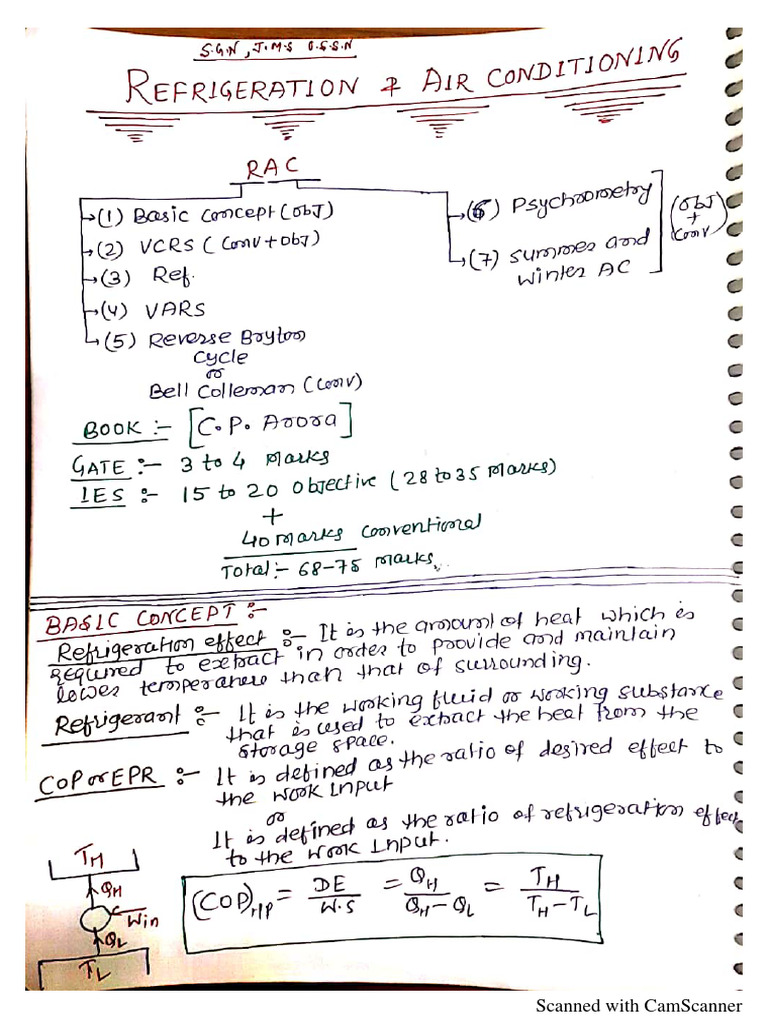 S.G.N, J.M.S G.S.S.N
REFRIGERATION & AIR CONDITIONING
RAC
(1) Basic concept (obJ)
(2) VCRS (Conv+obJ)
(3) Ref.
(4) VARS
(5) Reverse Bryton
cycle
or
Bell Colleman (Conv)
(6) Psychrometry
(7) Summer and
winter AC
(obJ
+
conv)
BOOK :- [C. P. Arora]
GATE :- 3 to 4 Marks
IES :- 15 to 20 objective (28 to 35 Marks)
+
40 Marks conventional
Total:- 68-75 Marks.
BASIC CONCEPT :-
Refrigeration effect :- It is the amount of heat which is
required to extract in order to provide and maintain
lower temperature than that of surrounding.
Refrigerant :- It is the working fluid or working substance
that is used to extract the heat from the
storage space.
COP or EPR :- It is defined as the ratio of desired effect to
the work Input
or
It is defined as the ratio of refrigeration effect
to the work Input.
TH
QH
Win
QL
TL
(COP)HP = DE/W.S = QH/QH-QL = TH/TH-TL
Scanned with CamScanner